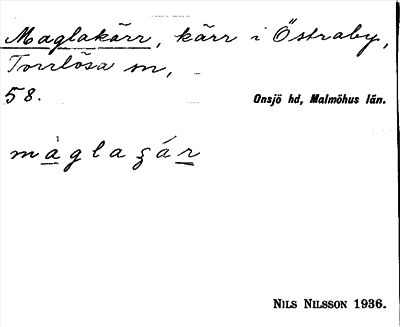 Maglakärr, kärr i Östraby,
Torrlösa sn,
58. Onsjö hd, Malmöhus län.
màglaʒár
NILS NILSSON 1936.